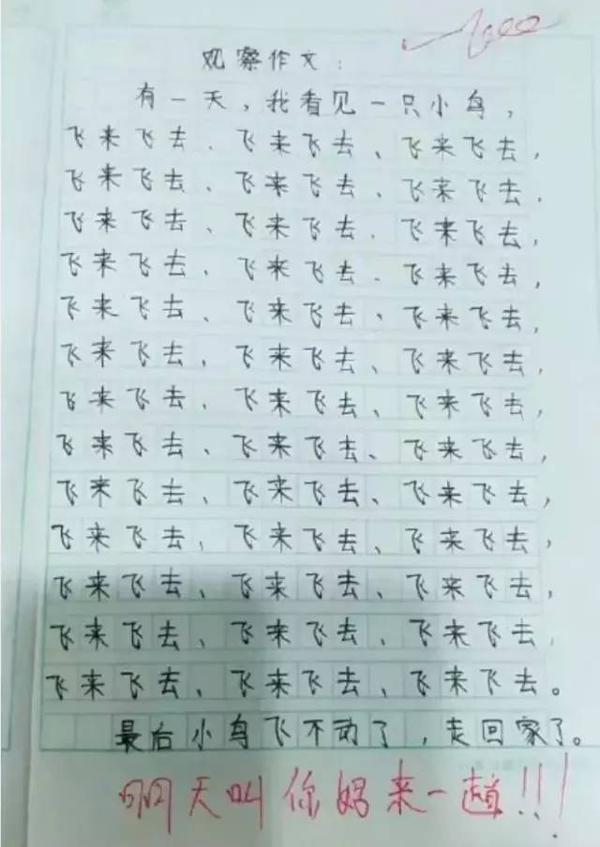 观察作文：
有一天，我看见一只小鸟，
飞来飞去、飞来飞去、飞来飞去，
飞来飞去、飞来飞去、飞来飞去，
飞来飞去、飞来飞去、飞来飞去，
飞来飞去、飞来飞去、飞来飞去，
飞来飞去、飞来飞去、飞来飞去，
飞来飞去、飞来飞去、飞来飞去，
飞来飞去、飞来飞去、飞来飞去，
飞来飞去、飞来飞去、飞来飞去，
飞来飞去、飞来飞去、飞来飞去，
飞来飞去、飞来飞去、飞来飞去，
飞来飞去、飞来飞去、飞来飞去，
飞来飞去、飞来飞去、飞来飞去，
飞来飞去、飞来飞去、飞来飞去。
最后小鸟飞不动了，走回家了。
明天叫你妈来一趟!!!